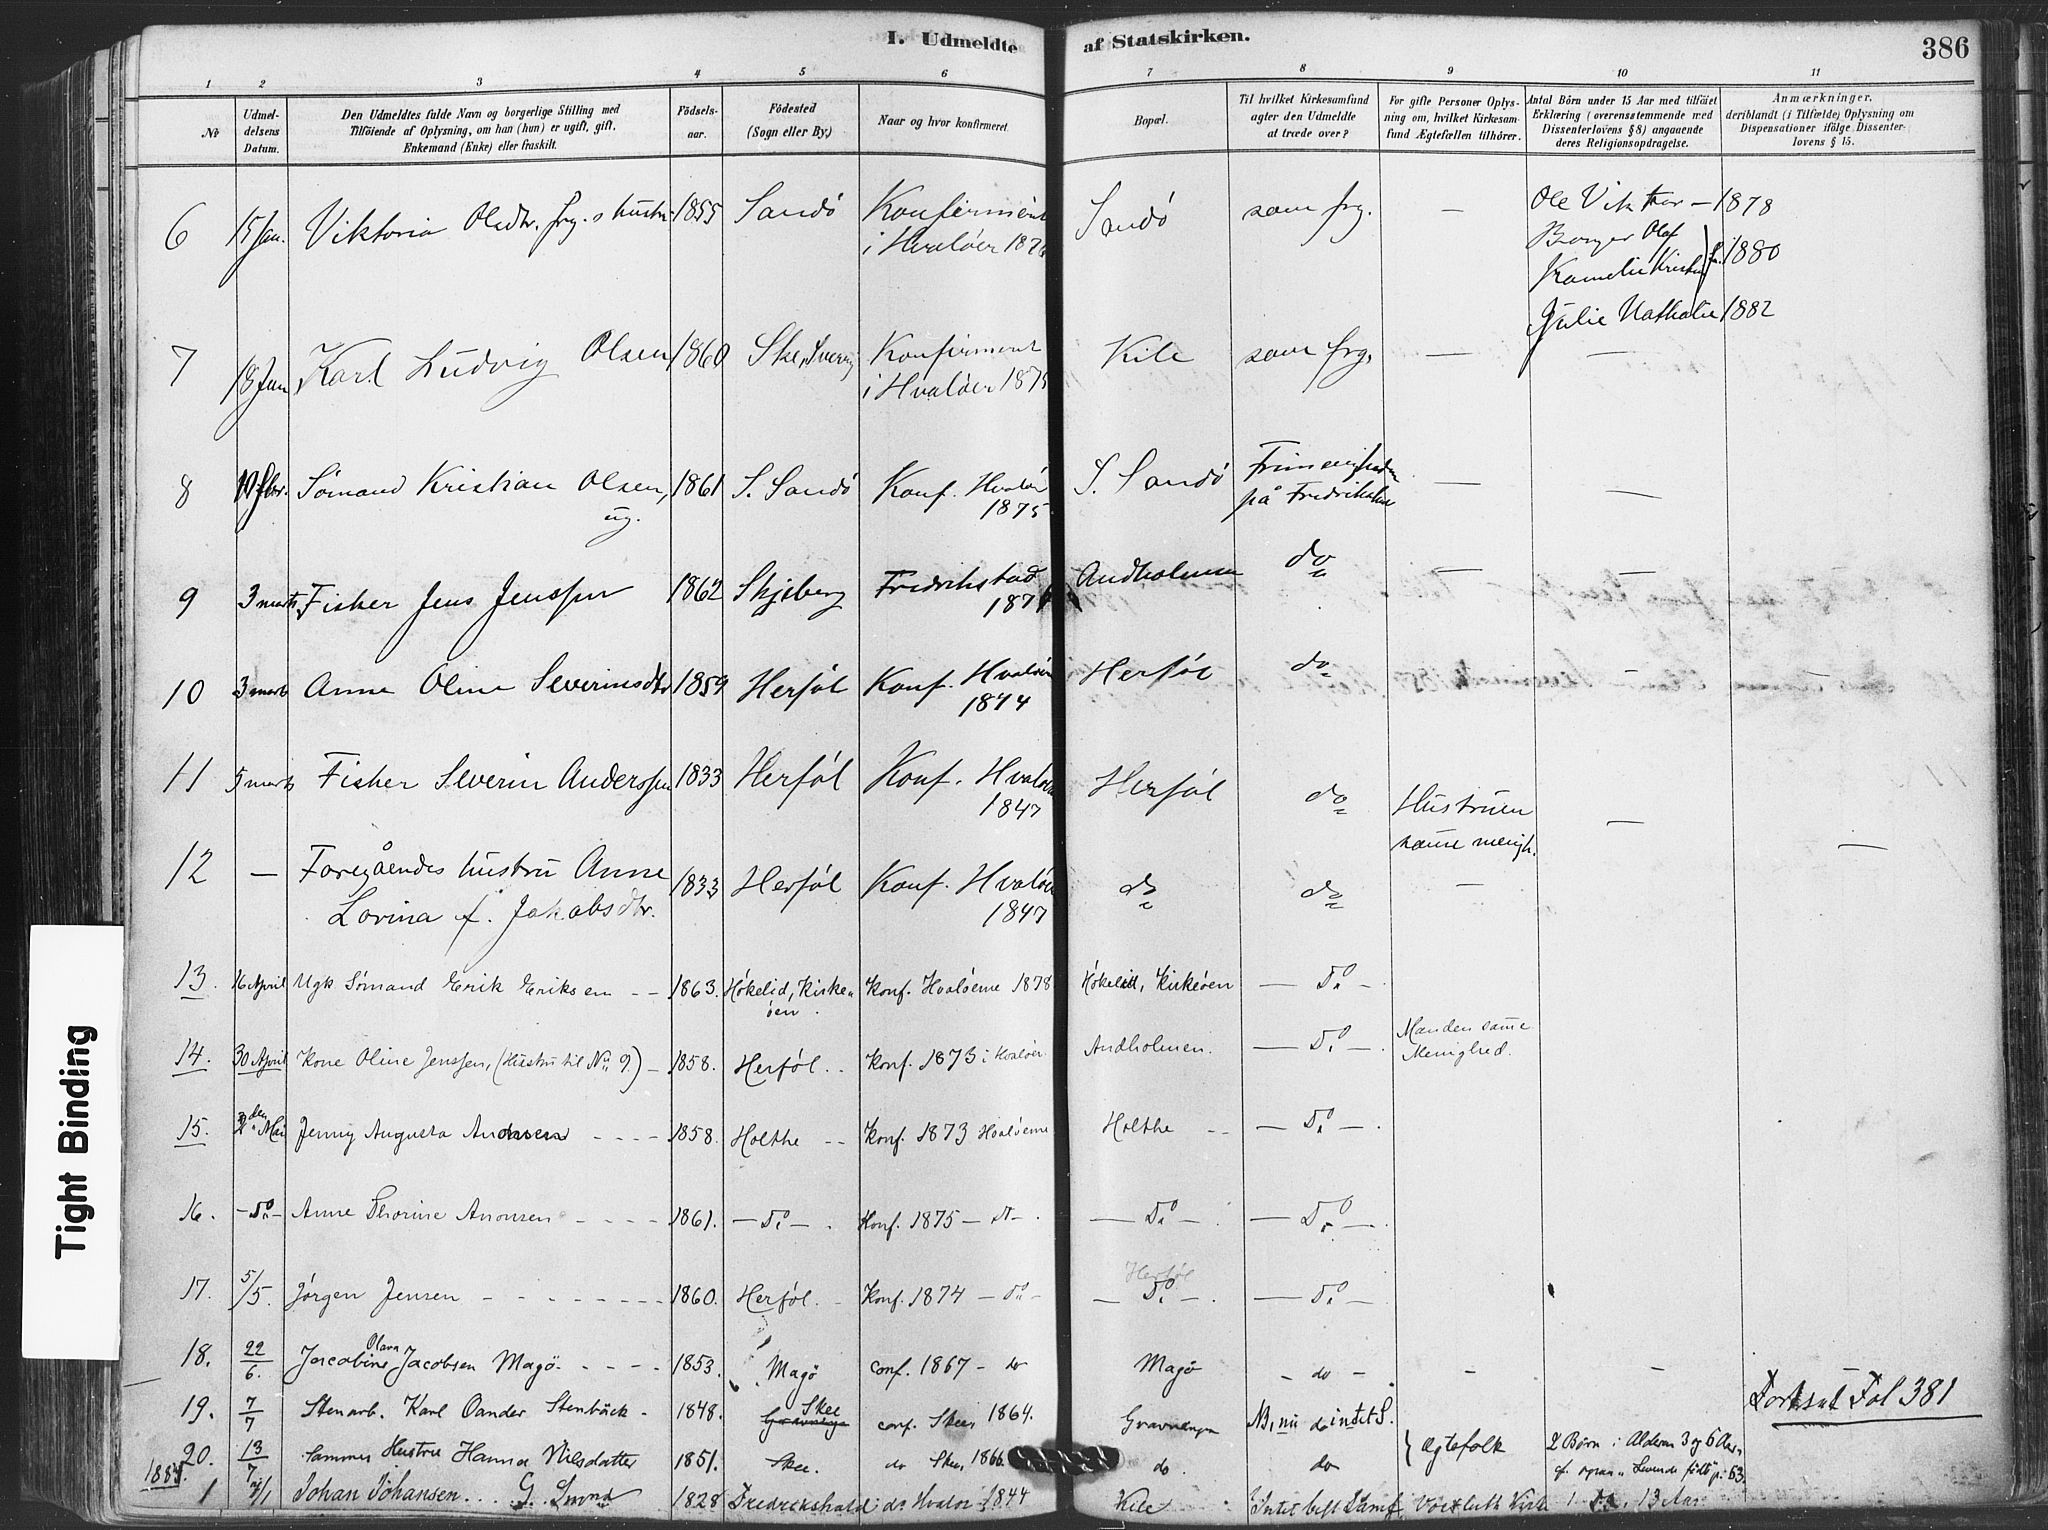 I. Udmeldte af Statskirken. 386
1 2 3 4 5 6 7 8 9 10 11
No
Udmeldelsens Datum.
Den Udmeldtes fulde Navn og borgerlige Stilling med
Tilföiende af Oplysning, om han (hun) er ugift, gift,
Enkemand (Enke) eller fraskilt.
Födselsaar.
Födested
(Sogn eller By.)
Naar og hvor konfirmeret.
Bopæl.
Til hvilket Kirkesamfund
agter den Udmeldte
at træde over?
For gifte Personer Oplysning om, hvilket Kirkesamfund Ægtefællen tilhörer.
Antal Börn under 15 Aar med tilföiet
Erklæring (overensstemmende med
Dissenterlovens § 8) angaaende
deres Religionsopdragelse.
Anmærkninger,
deriblandt (i Tilfælde) Oplysning om
Dispensationer ifölge Dissenterlovens § 15.
6 15 Jan. Viktoria Olsdtr. frg.s hustr. 1855 Sandö Konfirmeret i Hvaløer 1870 Sandö som frg. — Ole Viktor — 1878
Borger Olaf
Kamelie Kristin 1880
Julie Nathalie 1882
7 18 Jan. Karl Ludvig Olsen 1860 Ske, Sverig Konfirmeret i Hvaløer 1875 Kile som frg. — —
8 Sømand Kristian Olsen, ug. 1861 S. Sandø Konf. Hvaløer 1875 S. Sandø Frimenigheden på Fredrikshald — —
9 3 marts Fisker Jens Jenssen 1862 Skjeberg Fredrikstad Andholmen do — —
10 3 marts Anne Oline Severinsdtr 1859 Herføl Konf. Hvaløer 1874 Herføl do — —
11 5 marts Fisker Severin Anderssen 1833 Herføl Konf. Hvaløer 1847 Herføl do Hustruen samme menigh. —
12 — Foregåendes hustru Anne
Lovina f. Jakobsdtr. 1833 Herføl Konf. Hvaløer 1847 do do — —
13. 16 April Ugk Sømand Erik Eriksen -- 1863. Høkelid, Kirkeøen. Konf. Hvaløerne 1878 Høkelid, Kirkeøen — Do —
14. 30 April Kone Oline Jenssen, (Hustru til No 9.) — 1858. Herføl. Konf. 1873 i Hvaløer. Andholmen. — Do — Manden samme Menighed.
15. Mai Jenny Augusta 1858. Holthe -- Konf. 1873 Hvaløerne Holthe -- — Do —
16. — Do — Anne Thorine 1861. — Do — Konf. 1875 — Do — — Do — — Do —
17. 5/5. Jørgen Jensen 1860. Herføl. Konf. 1874 — Do — Herføl — Do — — Do —
18. 22/6. Jacobine Olava Jacobsen Magø. 1853. Magø conf. 1867 — do Magø — do — — —
19. 7/7 Stenarb. Karl Oander Stenbäck. 1848. Skee conf. Skee, 1864. NB, nu do intet S.
20. 13/7 Sammes Hustru Hanna Nilsdatter 1851. Skee. do Skee, 1866. do. do Ægtefolk 2 Børn i Alderen 3 og 6 Aar,
Fortsat Fol 381
1884.
1 Johan Johansen 1828 Fredrikshald do Hvalø 1844 Kile Intet best Samf. 13 Aar
Tight Binding